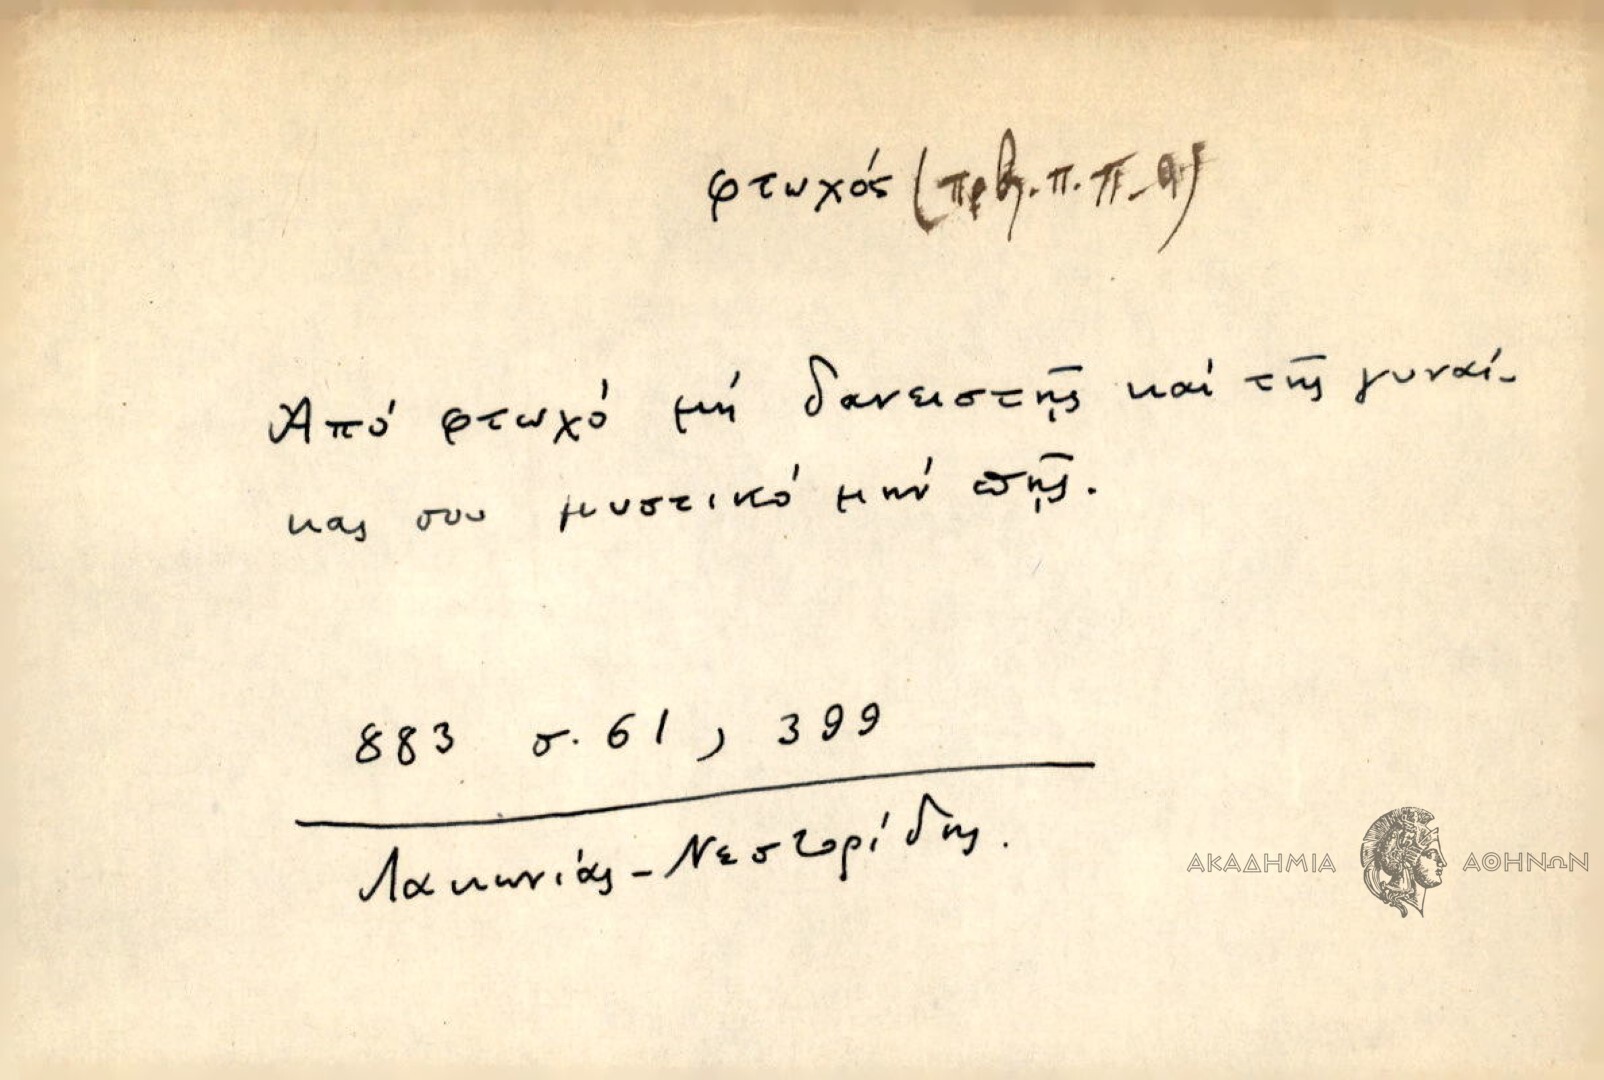 φτωχός
Ἀπό φτωχό μή δανειστῇς καί τῆς γυναί-
κας σου μυστικό μήν πῇς.
883 σ. 61, 399
Λακωνίας - Νεστορίδης.
ΑΚΑΔΗΜΙΑ ΑΘΗΝΩΝ